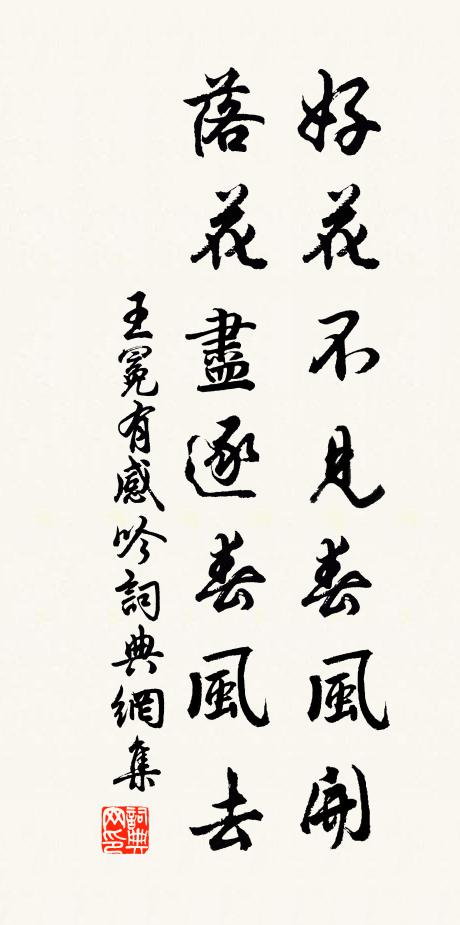 好花不見春風開
落花盡逐春風去
王冕有感吟詞典網集
詞典網印